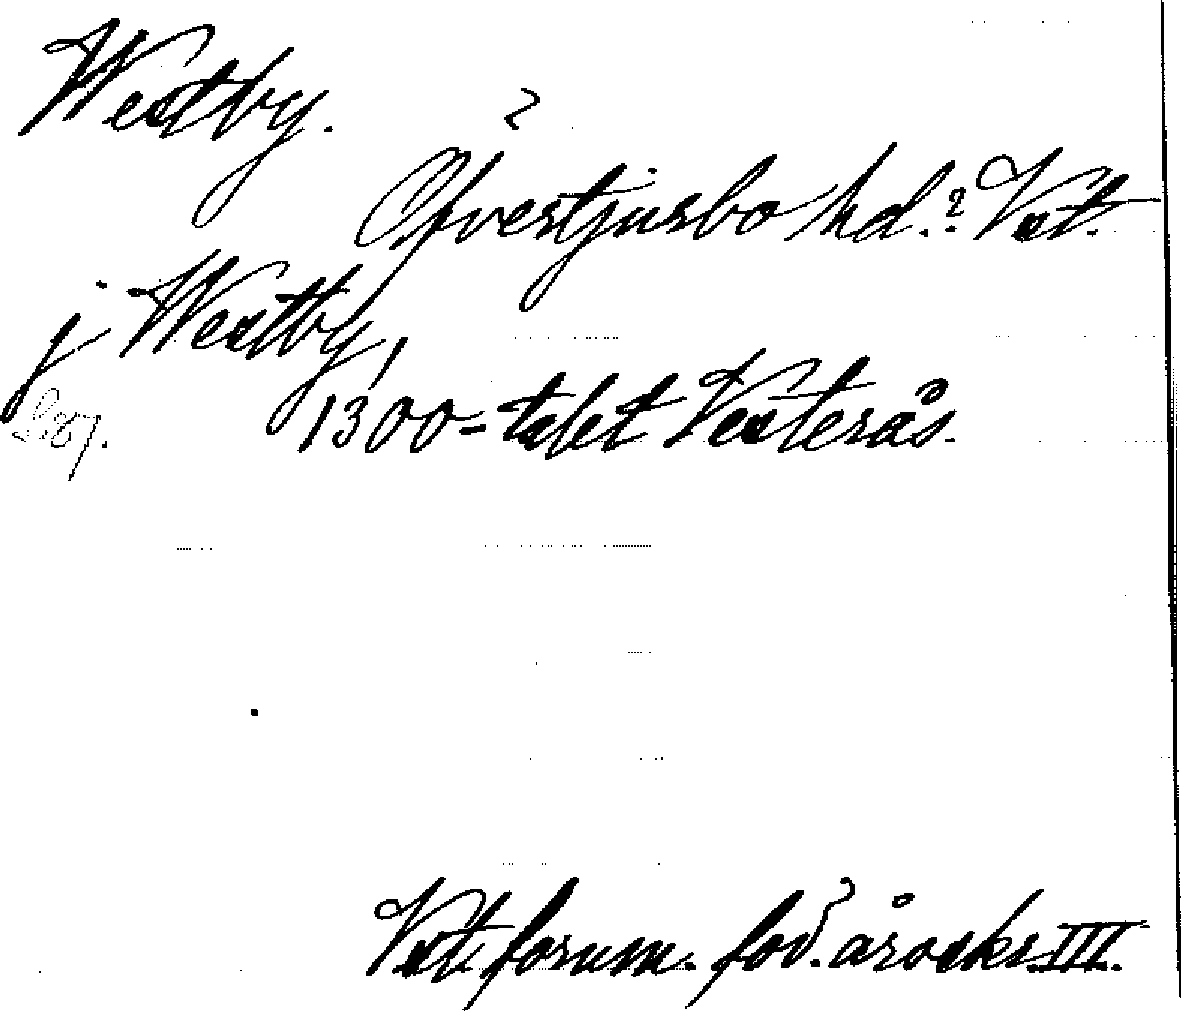 Westby.
?
Öfvertjurbo hd.? Vst.
j Westby,
1300-talet Vesterås.
Vstl. fornm. för. årsskr. III.